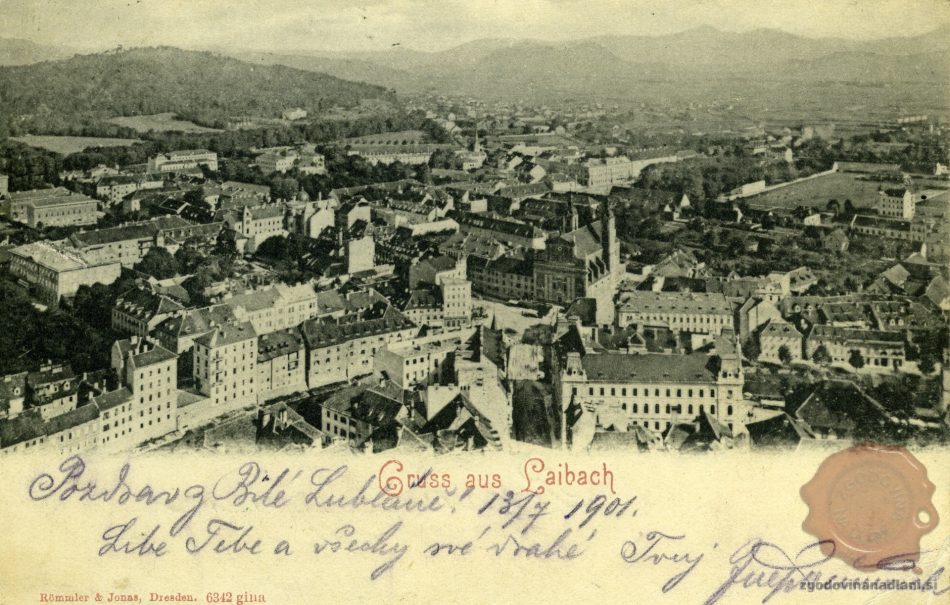 Gruss aus Laibach
Pozdrav z Bílé Lublaně! 13/7 1901.
Líbe Tebe a všecky své drahé Tvůj
zgodovinanadlani.si
Römmler & Jonas, Dresden. 6342 gina